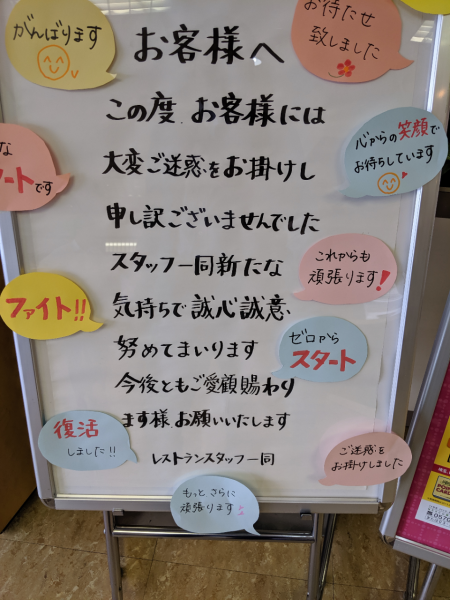 がんばります
お待たせ
致しました
お客様へ
この度、お客様には
大変ご迷惑をお掛けし
申し訳ございませんでした
スタッフ一同新たな
気持ちで誠心誠意、
努めてまいります
今後ともご愛顧賜わり
ます様、お願いいたします
レストランスタッフ一同
心からの笑顔で
お待ちしています
な
ートです
これからも
頑張ります!
ファイト!!
ゼロから
スタート
復活
しました!!
ご迷惑を
お掛けしました
もっとさらに
頑張ります
0570